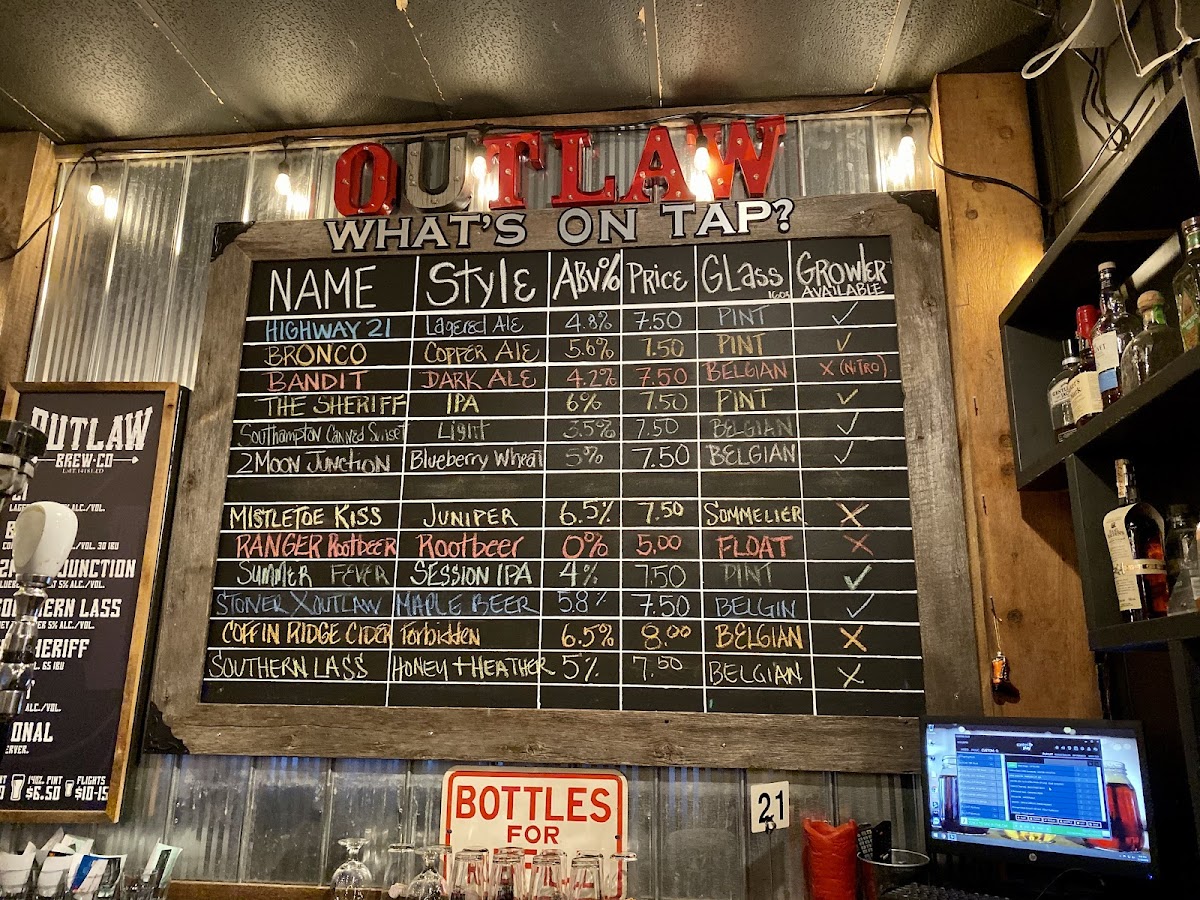 OUTLAW
WHAT'S ON TAP?
NAME Style ABV% Price Glass 16oz Growler AVAILABLE
HIGHWAY 21 Lagered Ale 4.8% 7.50 PINT ✓
BRONCO COPPER ALE 5.6% 7.50 PINT ✓
BANDIT DARK ALE 4.2% 7.50 BELGIAN X (NITRO)
THE SHERIFF IPA 6% 7.50 PINT ✓
Southampton Canned Sunset Light 3.5% 7.50 BELGIAN ✓
2 Moon Junction Blueberry Wheat 5% 7.50 BELGIAN ✓
MISTLETOE KISS JUNIPER 6.5% 7.50 SOMMELIER X
RANGER RootBEER Rootbeer 0% 5.00 FLOAT X
SUMMER FEVER SESSION IPA 4% 7.50 PINT ✓
STONER X OUTLAW MAPLE BEER 5.8% 7.50 BELGIN ✓
COFFIN RIDGE CIDER Forbidden 6.5% 8.00 BELGIAN X
SOUTHERN LASS HONEY + HEATHER 5% 7.50 BELGIAN X
OUTLAW
BREW·CO
ALC./VOL.
ALC./VOL. 30 IBU
JUNCTION
5% ALC./VOL.
LASS
5% ALC./VOL.
65 IBU
14OZ. PINT FLIGHTS
$6.50 $10-15
BOTTLES
FOR
21
hp